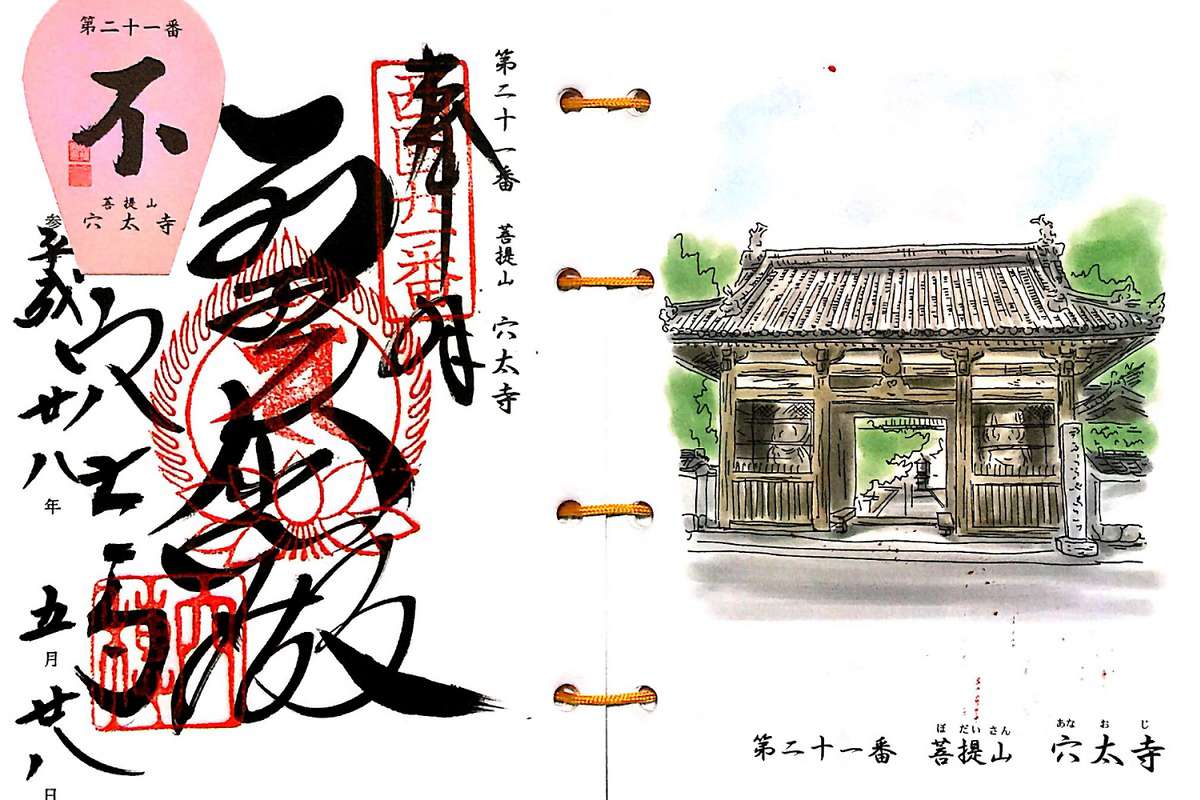 第二十一番 菩提山 穴太寺
奉拝
西国廿一番
穴太寺
参
平成廿八年 五月廿八日
第二十一番
不
菩提山
穴太寺
ぼだいさん あなおじ
第二十一番 菩提山 穴太寺